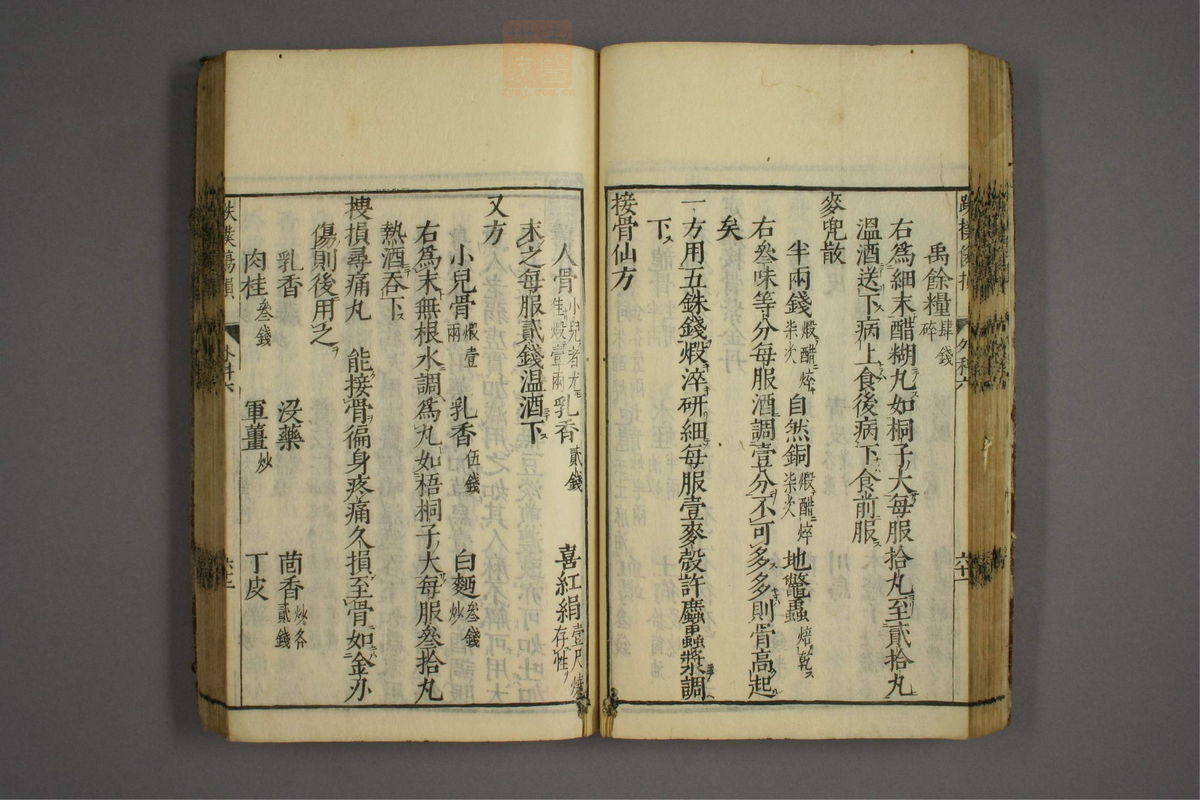 禹餘糧肆錢碎
右爲細末醋糊丸如桐子大每服拾丸至貳拾丸
溫酒送下病上食後病下食前服
麥兜散
半兩錢煅醋焠柒次 自然銅煅醋焠柒次 地鼈蟲焙乾
右叄味等分每服酒調壹分不可多多則骨高起
矣
一方用五銖錢煅淬研細每服壹麥殼許䗪蟲漿調
下
接骨仙方
人骨小兒者尤佳煅壹兩 乳香貳錢 喜紅絹壹尺燒存性
末之每服貳錢温酒下
又方
小兒骨煅壹兩 乳香伍錢 白麵叄錢炒
右爲末無根水調爲丸如梧桐子大每服叄拾丸
熱酒吞下
搜損尋痛丸 能接骨徧身疼痛久損至骨如金刃
傷則後用之
乳香 沒藥 茴香炒各貳錢
肉桂叄錢 軍薑炒 丁皮
外科六
六十二
六十一